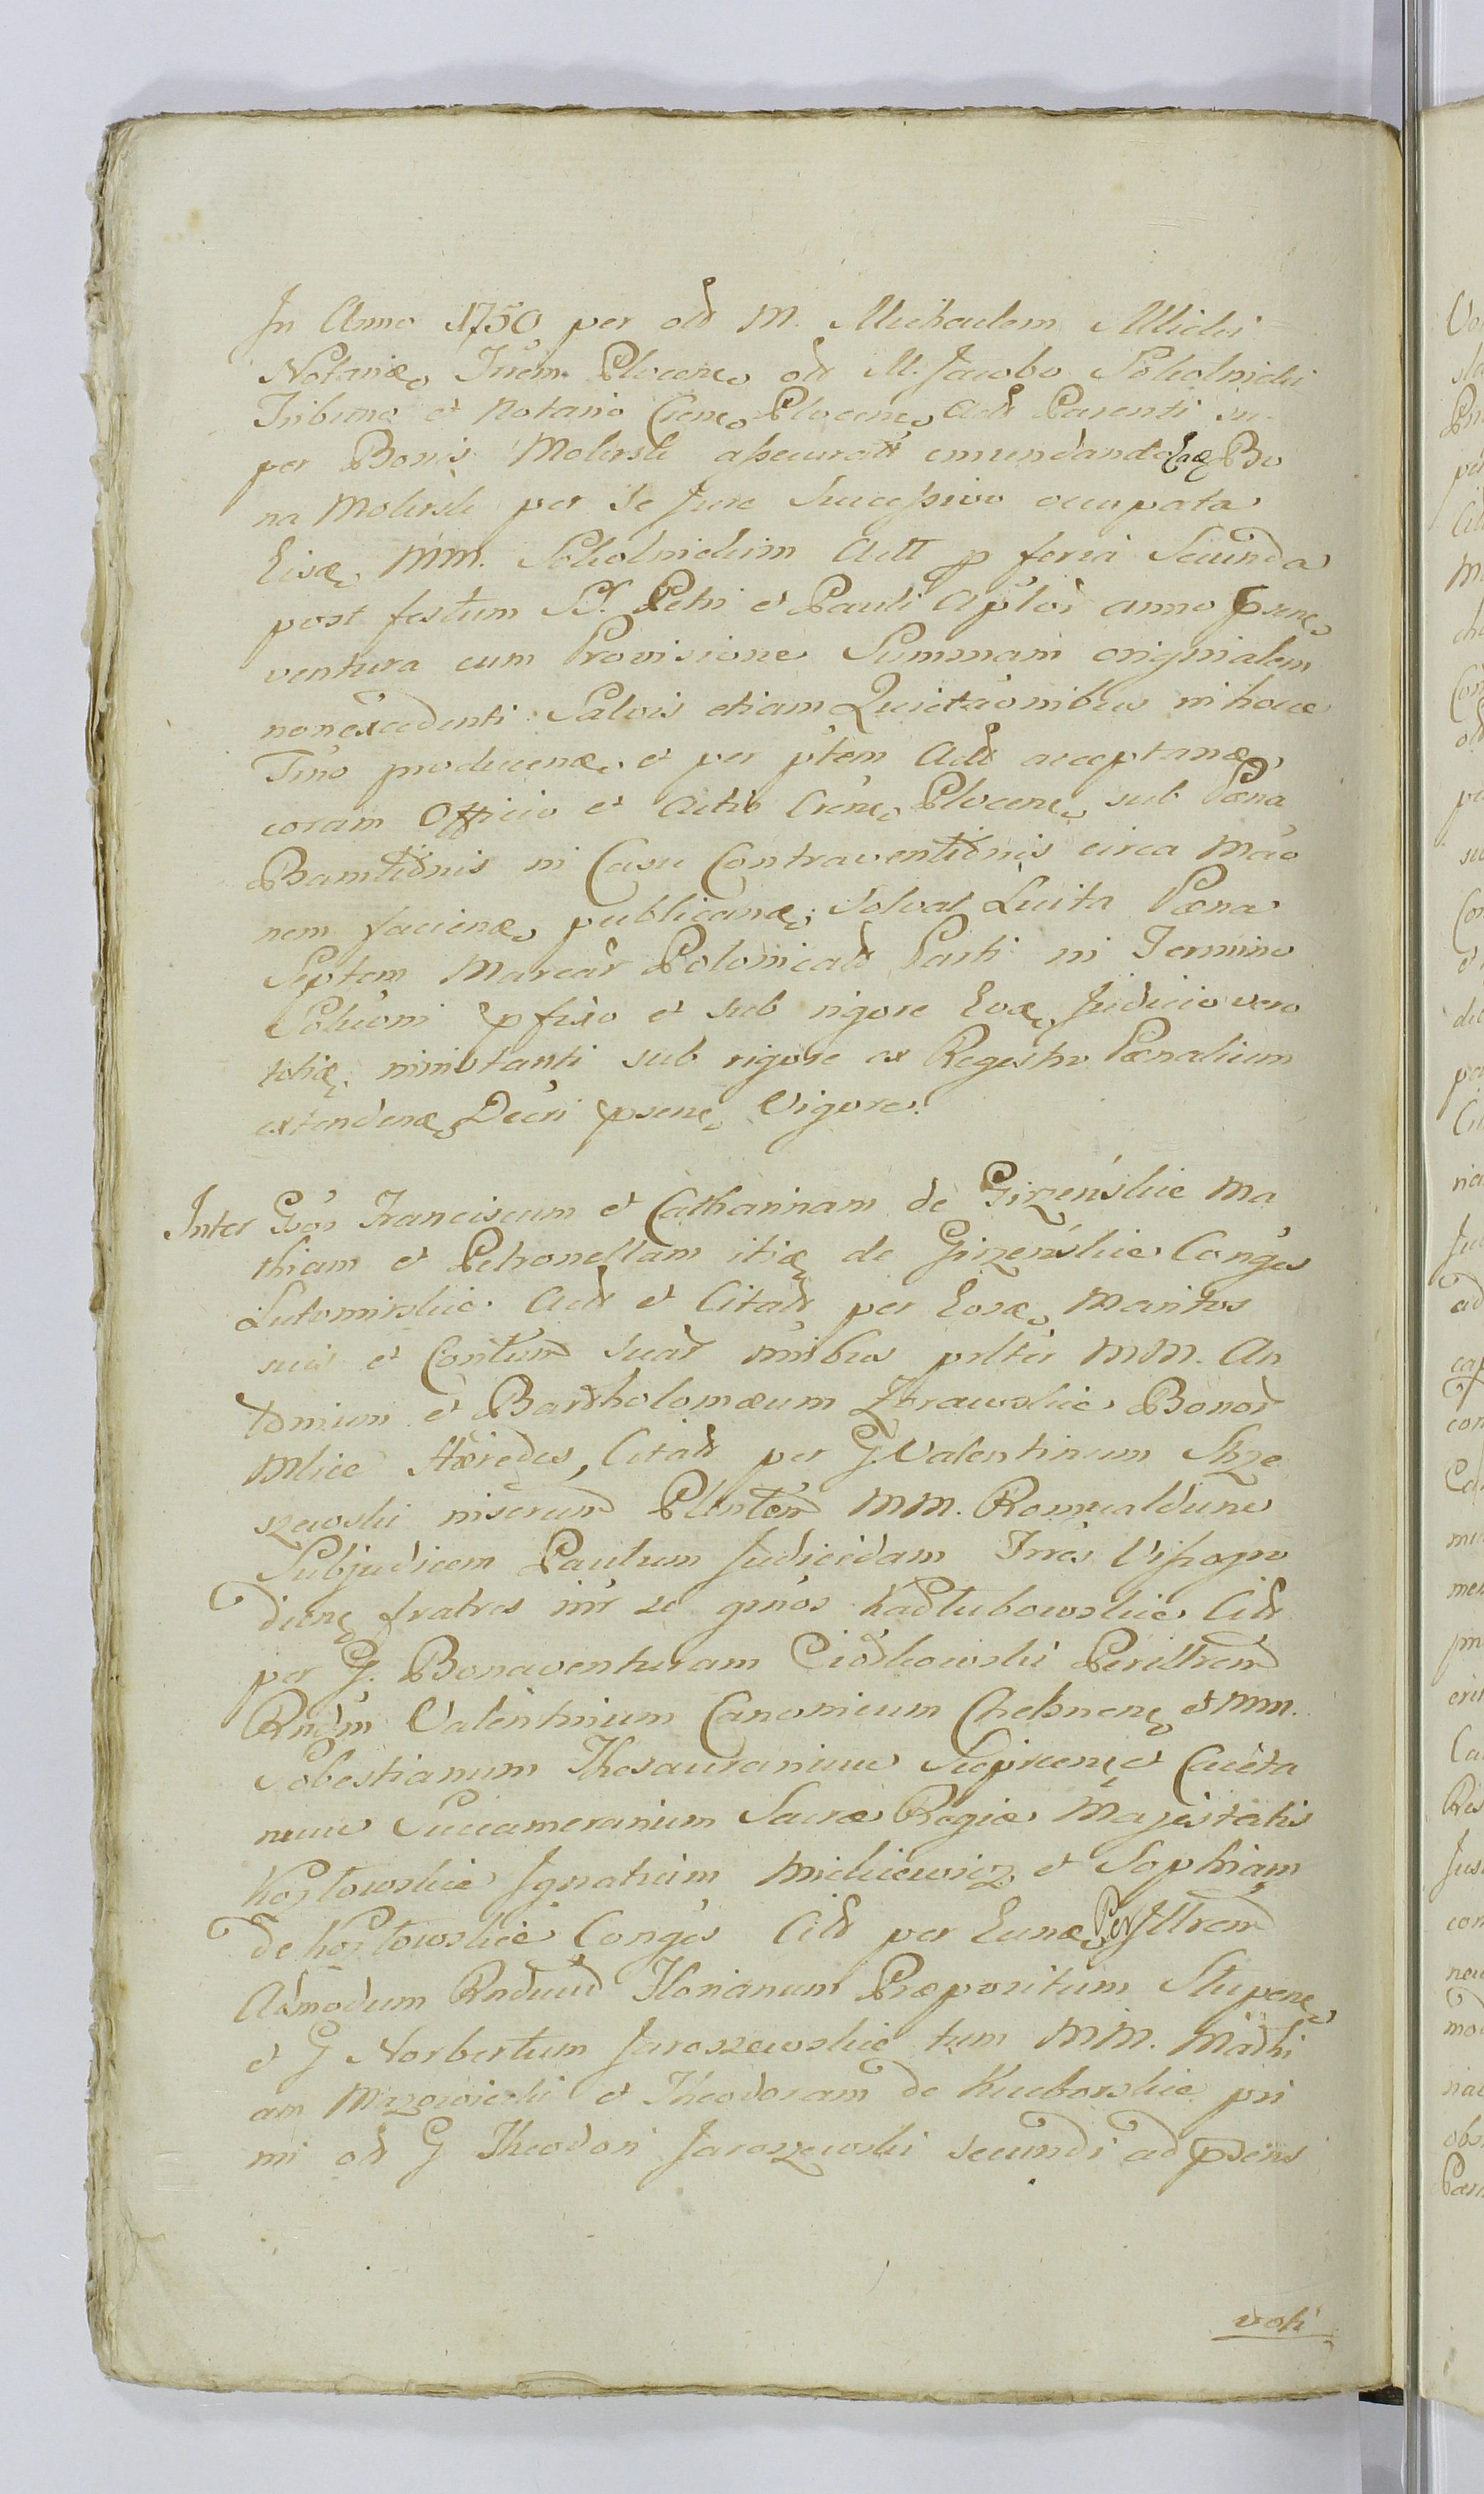 In Anno 1750 per old M. Michaelem Mlicki
Notariæ Trem Plocen, old M. Jacobo Sokolnicki
Tribuno et Notario Crene Plocene Actt Parenti su-
per Bonis Mokrsk assecuratt emundando Eaq Bo
na Mokrsk per se Jure Successivo occupata
Eisq MM. Sokolnickim Actt p feria Secunda
post festum SS. Petri et Pauli Aplor anno psene
ventura cum Provisione Summam originalem
non excedenti Salvis etiam Quietaonibus in hocce
Tno producenæ et per ptem Actt acceptanæ
coram Officio et Actis Crene Plocene sub Pæna
Bannitionis in Casu Contraventionis circa Mao
nem facienæ publicanæ, Solvat Luita Pæna
Septem Marcar Polonicalt Parti in Termino
Solucioni p fixo et sub rigore Evæ, Judicio vero
totiæ, ministranti sub rigore ex Regestro Pænalium
extendenæ Decri psene Vigore.
Inter Gsos Franciscum et Catharinam de Girzenskie Ma
thiam et Petronellam itiæ de Girzenskie Conges
Lutomirskie Actt et Citalt per Eosæ Maritos
suis et Contum suar nnibus pltis MM. An
tonium et Bartholomæum Zbrawskie Bonor
Mlice Hæredes, Citatt per G. Valentinum Skrze
szewski niserund Pllntem MM. Romualdum
Subjudicem Paulum Judicidam Trres Vissogro
diene fratres inr se gnos Kadłubowskie Citt
per G. Bonaventuram Ciołkowski Perillrem
Rndm Valentinum Canonicum Chelmene et MM.
Sobestianum Thesaurarium Sieprcene et Caieta
num Succamerarium Sacræ Regiæ Majestatis
Kozłowskie Ignatium Mickiewicz et Sophiam
de Kozłowskie Conges Citt per Eunæ Per Illrem
Admodum Rndum Florianum Præpositum Slupene
et G Norbertum Jaroszewskie tum MM. Mathi
am Mazowiecki et Theodoram de Kucborskie pri
mi old G Theodori Jaroszewski secundi ad psens
voti